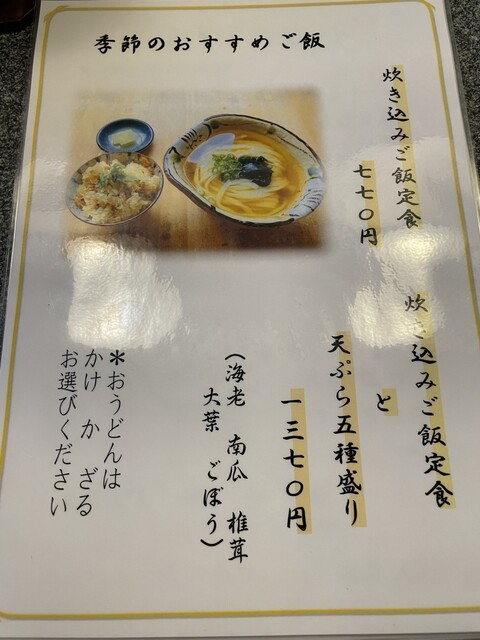 季節のおすすめご飯
炊き込みご飯定食
七七〇円
炊き込みご飯定食
と
天ぷら五種盛り
一三七〇円
(海老 南瓜 椎茸
大葉 ごぼう)
＊おうどんは
かけ か ざる
お選びください